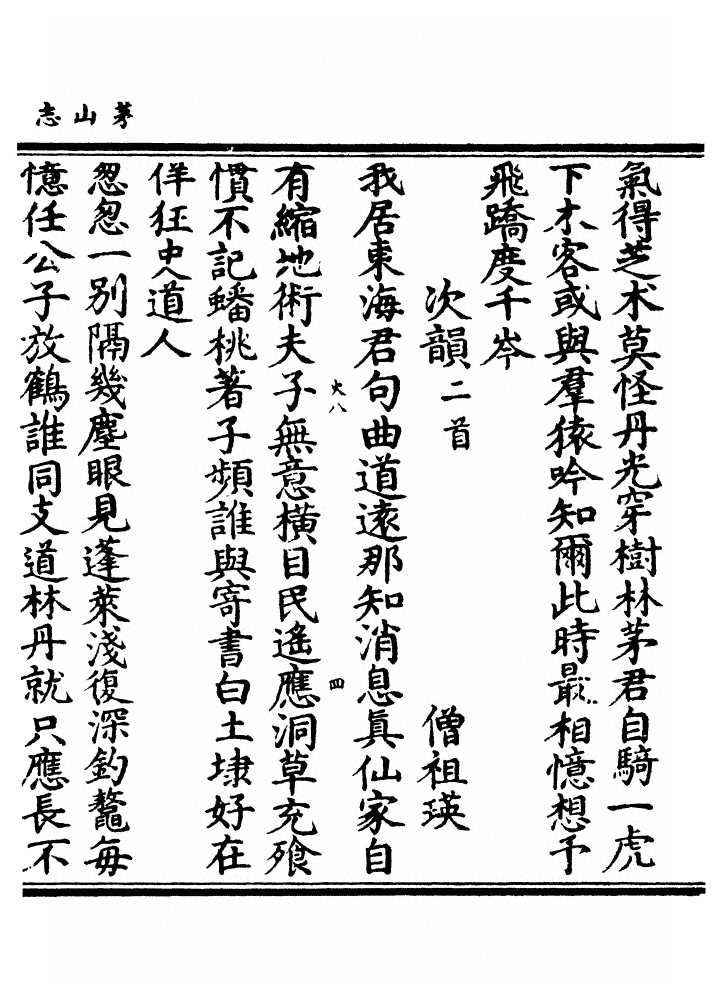 茅山志
氣得芝术莫怪丹光穿樹林茅君自騎一虎
下木客或與羣猿吟知爾此時最相憶想予
飛蹻度千岑
次韻二首
僧祖瑛
我居東海君句曲道遠那知消息真仙家自
火八
有縮地術夫子無意橫目民遙應洞草充飱
四
慣不記蟠桃著子頻誰與寄書白土埭好在
佯狂史道人
怱怱一別隔幾塵眼見蓬萊淺復深釣鼇每
憶任公子放鶴誰同支道林丹就只應長不